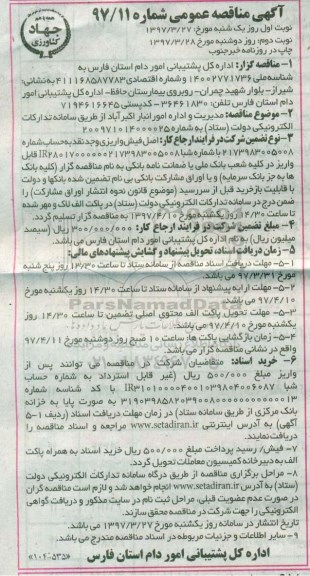 آگهی مناقصه عمومی شماره ۹۷/۱۱
نوبت اول: روز یک شنبه مورخ: ۱۳۹۷/۳/۲۷
نوبت دوم: روز دوشنبه مورخ ۱۳۹۷/۳/۲۸
چاپ در روزنامه خبرجنوب
جهاد
کشاورزی
۱- مناقصه گزار: اداره کل پشتیبانی امور دام استان فارس به
شناسه ملی ۱۴۰۰۲۷۷۱۷۳۶ و شماره اقتصادی ۴۱۱۱۶۸۵۸۷۷۸۳ به نشانی:
شیراز- بلوار شهید چمران- روبروی بیمارستان حافظ- اداره کل پشتیبانی امور
دام استان فارس تلفن: ۳۶۴۶۱۸۳۰ - کدپستی ۷۱۹۴۶۱۶۶۴۵
۲- موضوع مناقصه: مدیریت و اداره امور انبار اکبرآباد از طریق سامانه تدارکات
الکترونیکی دولت (ستاد) به شماره ۲۰۰۹۷۱۰۱۴۰۰۰۰۲۵
۳- نوع تضمین شرکت در فرایند ارجاع کار: اصل فیش واریزی وجه نقد به حساب شماره
۲۱۷۳۹۸۳۰۰۵۰۰۸ با شماره شبا IR۲۸۰۱۷۰۰۰۰۰۰۰۲۱۷۳۹۸۳۰۰۵۰۰۸ قابل
واریز در کلیه شعب بانک ملی یا ضمانت نامه بانکی به نام مناقصه گزار (کلیه بانک
ها به جز بانک سرمایه) و یا اوراق مشارکت بانکی بی نام تضمین شده بانکها و دولت
با قابلیت بازخرید قبل از سررسید (موضوع قانون نحوه انتشار اوراق مشارکت) را
ضمن درج در سامانه تدارکات الکترونیکی دولت (ستاد) در پاکت الف لاک و مهر شده
تا ساعت ۱۴/۳۰ روز یکشنبه مورخ ۱۳۹۷/۴/۱۰ به مناقصه گزار تسلیم گردد.
۴- مبلغ تضمین شرکت در فرایند ارجاع کار: ۳۰۰/۰۰۰/۰۰۰ ریال (سیصد
میلیون ریال) به نام اداره کل پشتیبانی امور دام استان فارس می باشد.
۵- زمان دریافت اسناد، تحویل پیشنهاد و گشایش پیشنهادهای مالی:
۵-۱- مهلت دریافت اسناد مناقصه از سامانه ستاد تا ساعت ۱۳/۳۰ روز پنج شنبه
مورخ ۹۷/۳/۳۱ می باشد.
۵-۲- مهلت ارایه پیشنهاد از سامانه ستاد تا ساعت ۱۴/۳۰ روز یکشنبه مورخ
۹۷/۴/۱۰ می باشد.
۵-۳- مهلت تحویل پاکت الف محتوی اصلی تضمین تا ساعت ۱۴/۳۰ روز
یکشنبه مورخ ۹۷/۴/۱۰ می باشد.
۵-۴- زمان بازگشایی پاکت ها: ساعت ۱۰ صبح روز دوشنبه مورخ ۹۷/۴/۱۱
واقع در نشانی مناقصه گزار می باشد.
۶- خرید اسناد: متقاضیان شرکت در مناقصه می توانند پس از
واریز مبلغ ۵۰۰/۰۰۰ ریال (غیر قابل استرداد به شماره حساب
شبا با کد شناسه شماره
به صورت پایا به خزانه
بانک مرکزی از طریق سامانه ستاد) در زمان مهلت دریافت اسناد (ردیف ۱-۵
آگهی) به آدرس اینترنتی www.setadiran.ir مراجعه و اسناد مناقصه را
دریافت نمایند.
۷- فیش/ رسید پرداخت مبلغ ۵۰۰/۰۰۰ ریال خرید اسناد به همراه پاکت
الف به دبیرخانه کمیسیون معاملات تحویل گردد.
۸- مراحل برگزاری مناقصه از طریق درگاه سامانه تدارکات الکترونیکی دولت
(ستاد) به آدرس www.setadiran.ir انجام خواهد شد و لازم است مناقصه گران
در صورت عدم عضویت قبلی، مراحل ثبت نام در سایت مذکور و دریافت گواهی
الکترونیکی را جهت شرکت در مناقصه محقق سازند.
تاریخ انتشار در سامانه روز یکشنبه مورخ ۱۳۹۷/۳/۲۷ می باشد.
۹- سایر اطلاعات و جزئیات مربوطه در اسناد مناقصه مندرج می باشد.
اداره کل پشتیبانی امور دام استان فارس
ParsNamadData